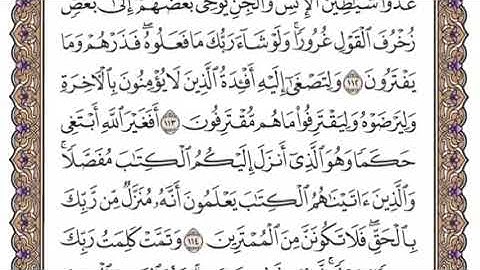 عَدُوًّا شَيَٰطِينَ ٱلْإِنسِ وَٱلْجِنِّ يُوحِى بَعْضُهُمْ إِلَىٰ بَعْضٍ
زُخْرُفَ ٱلْقَوْلِ غُرُورًا ۚ وَلَوْ شَآءَ رَبُّكَ مَا فَعَلُوهُ ۖ فَذَرْهُمْ وَمَا
يَفْتَرُونَ ١١٢ وَلِتَصْغَىٰٓ إِلَيْهِ أَفْـِٔدَةُ ٱلَّذِينَ لَا يُؤْمِنُونَ بِٱلْـَٔاخِرَةِ
وَلِيَرْضَوْهُ وَلِيَقْتَرِفُوا۟ مَا هُم مُّقْتَرِفُونَ ١١٣ أَفَغَيْرَ ٱللَّهِ أَبْتَغِى
حَكَمًا وَهُوَ ٱلَّذِىٓ أَنزَلَ إِلَيْكُمُ ٱلْكِتَٰبَ مُفَصَّلًا ۚ
وَٱلَّذِينَ ءَاتَيْنَٰهُمُ ٱلْكِتَٰبَ يَعْلَمُونَ أَنَّهُۥ مُنَزَّلٌ مِّن رَّبِّكَ
بِٱلْحَقِّ ۖ فَلَا تَكُونَنَّ مِنَ ٱلْمُمْتَرِينَ ١١٤ وَتَمَّتْ كَلِمَتُ رَبِّكَ